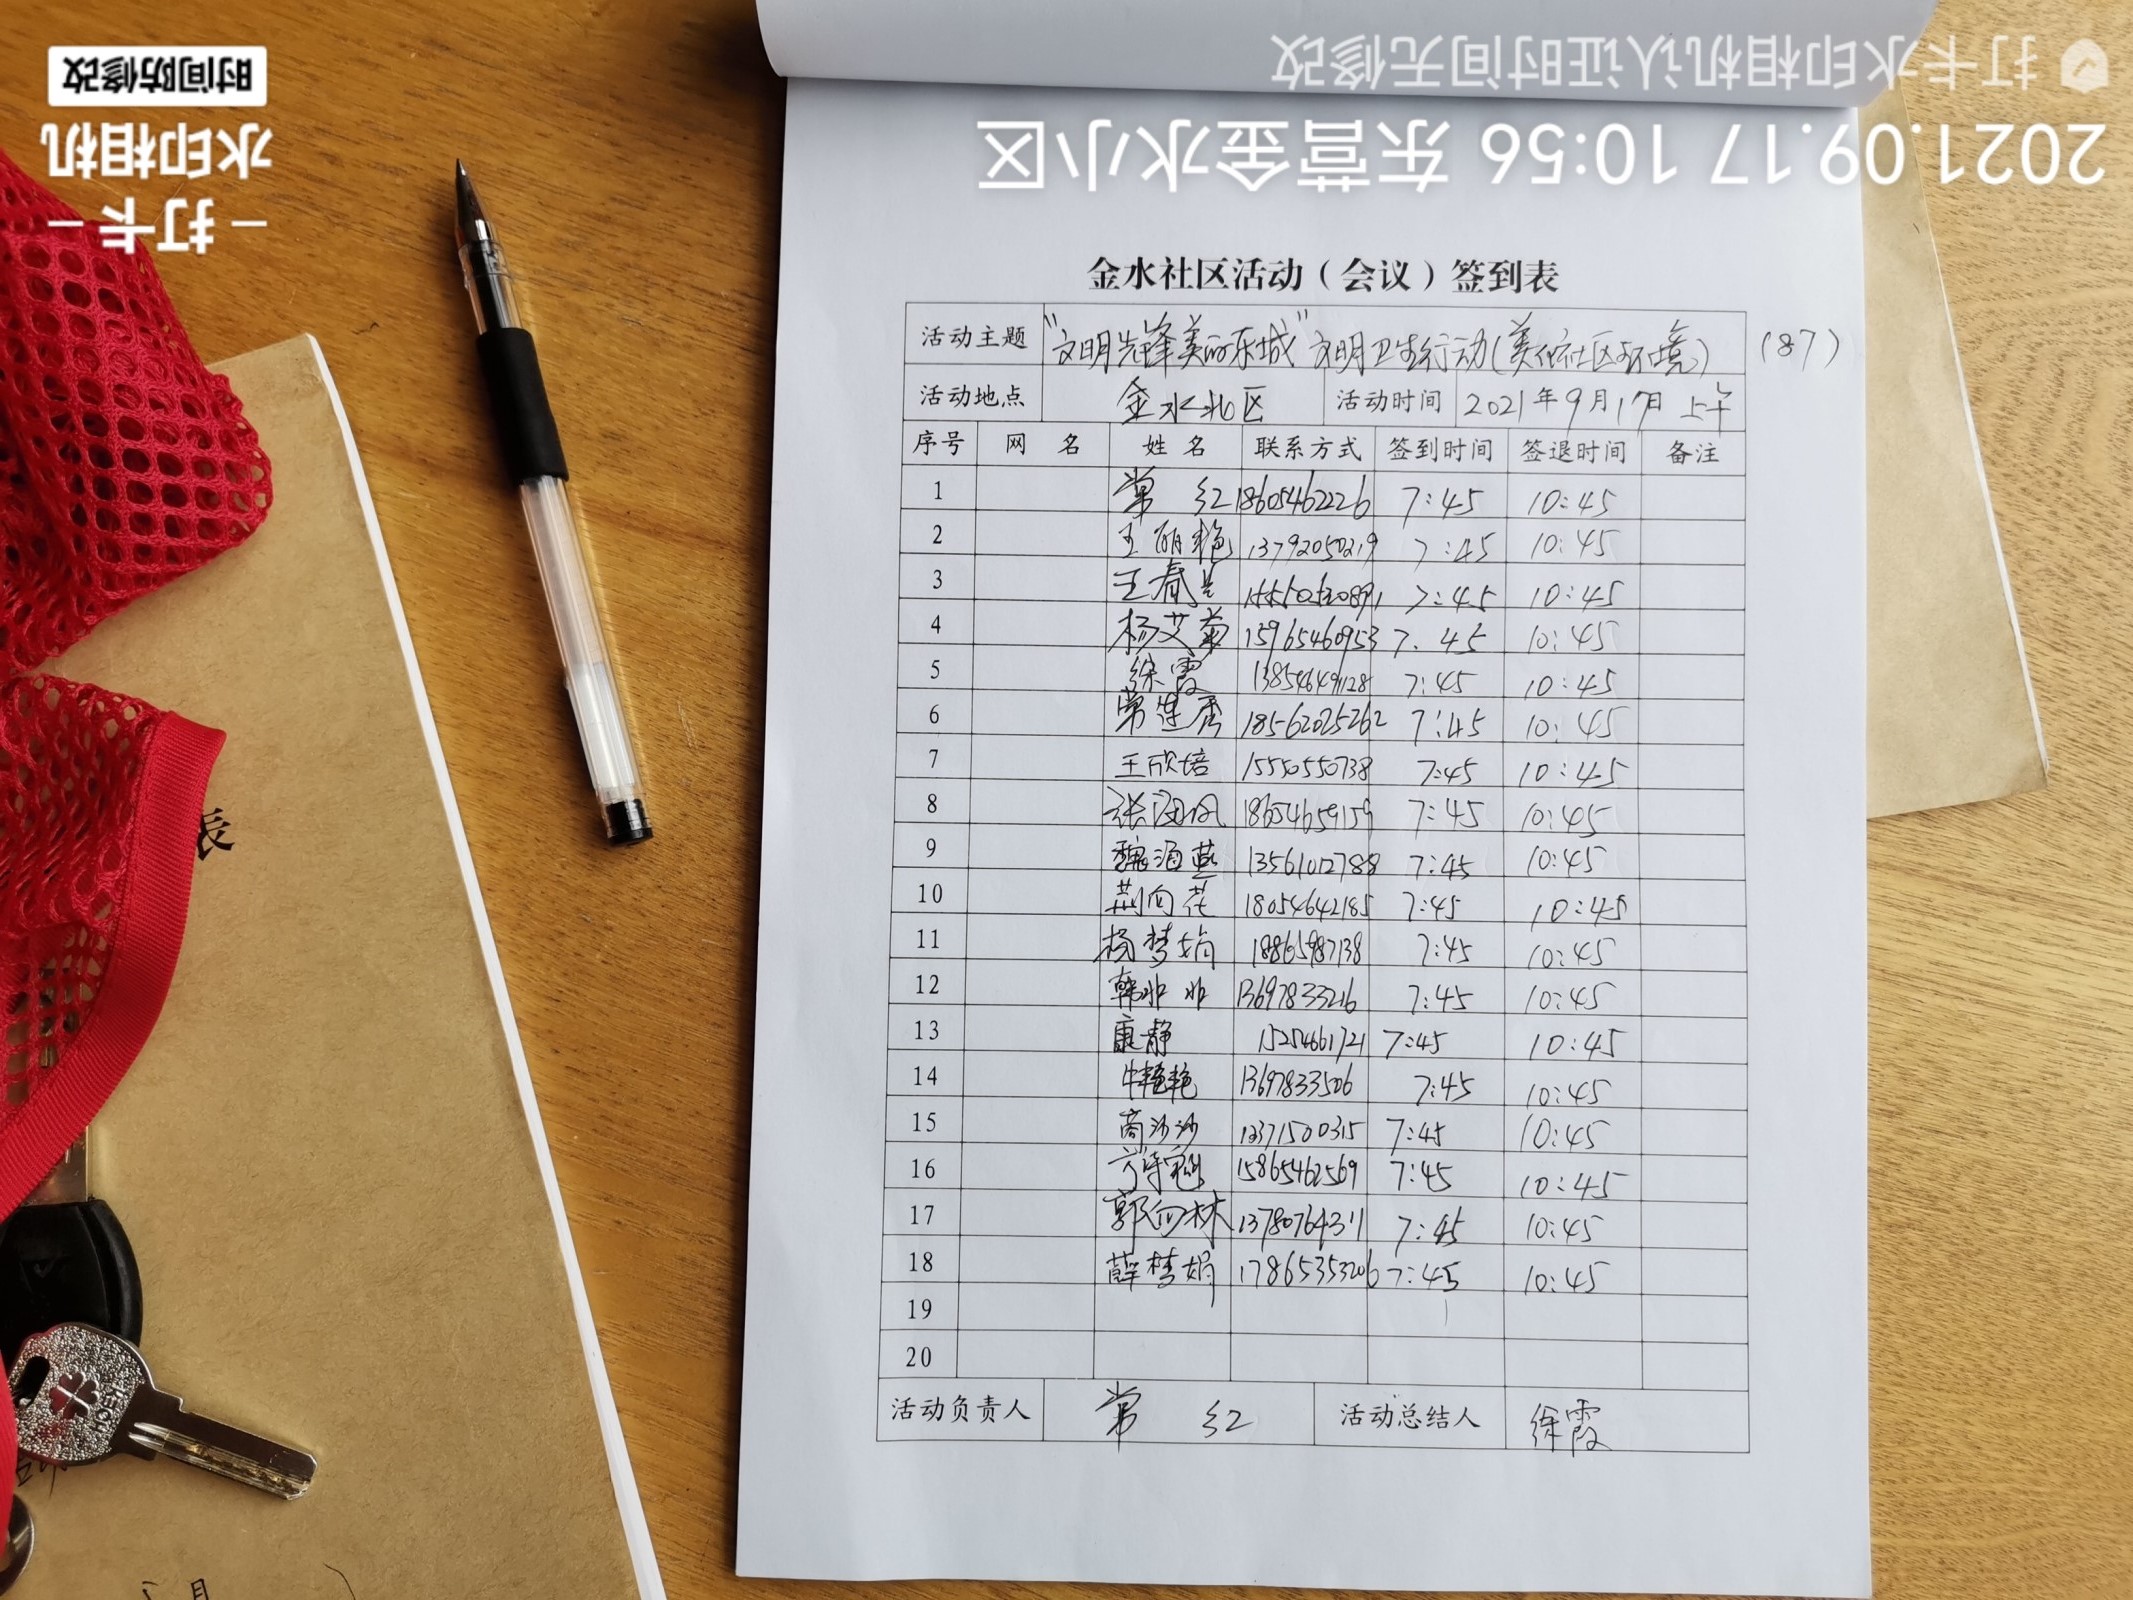 打卡水印相机认证时间无修改
2021.09.17 10:56 东营金水小区
时间防修改
水印相机
- 打卡 -
金水社区活动（会议）签到表
活动主题 “文明先锋美丽东城”文明卫生行动(美化社区环境) (87)
活动地点 金水北区 活动时间 2021年9月17日 上午
序号 网 名 姓 名 联系方式 签到时间 签退时间 备注
1 常 红 18605462226 7:45 10:45
2 王丽艳 13792050219 7:45 10:45
3 王春兰 7:45 10:45
4 杨艾菊 15965460953 7:45 10:45
5 徐霞 13854649128 7:45 10:45
6 常莲秀 18562025262 7:45 10:45
7 王欣培 15550550738 7:45 10:45
8 张 18654659159 7:45 10:45
9 魏海燕 13561012788 7:45 10:45
10 荆向花 18054642185 7:45 10:45
11 杨梦娟 18865987138 7:45 10:45
12 韩 13697833216 7:45 10:45
13 康静 15254661721 7:45 10:45
14 牛艳艳 13697833506 7:45 10:45
15 商沙沙 13371500315 7:45 10:45
16 15865462569 7:45 10:45
17 郭向林 13780764311 7:45 10:45
18 薛梦娟 17865353206 7:45 10:45
19
20
活动负责人 常 红 活动总结人 徐霞
表
月